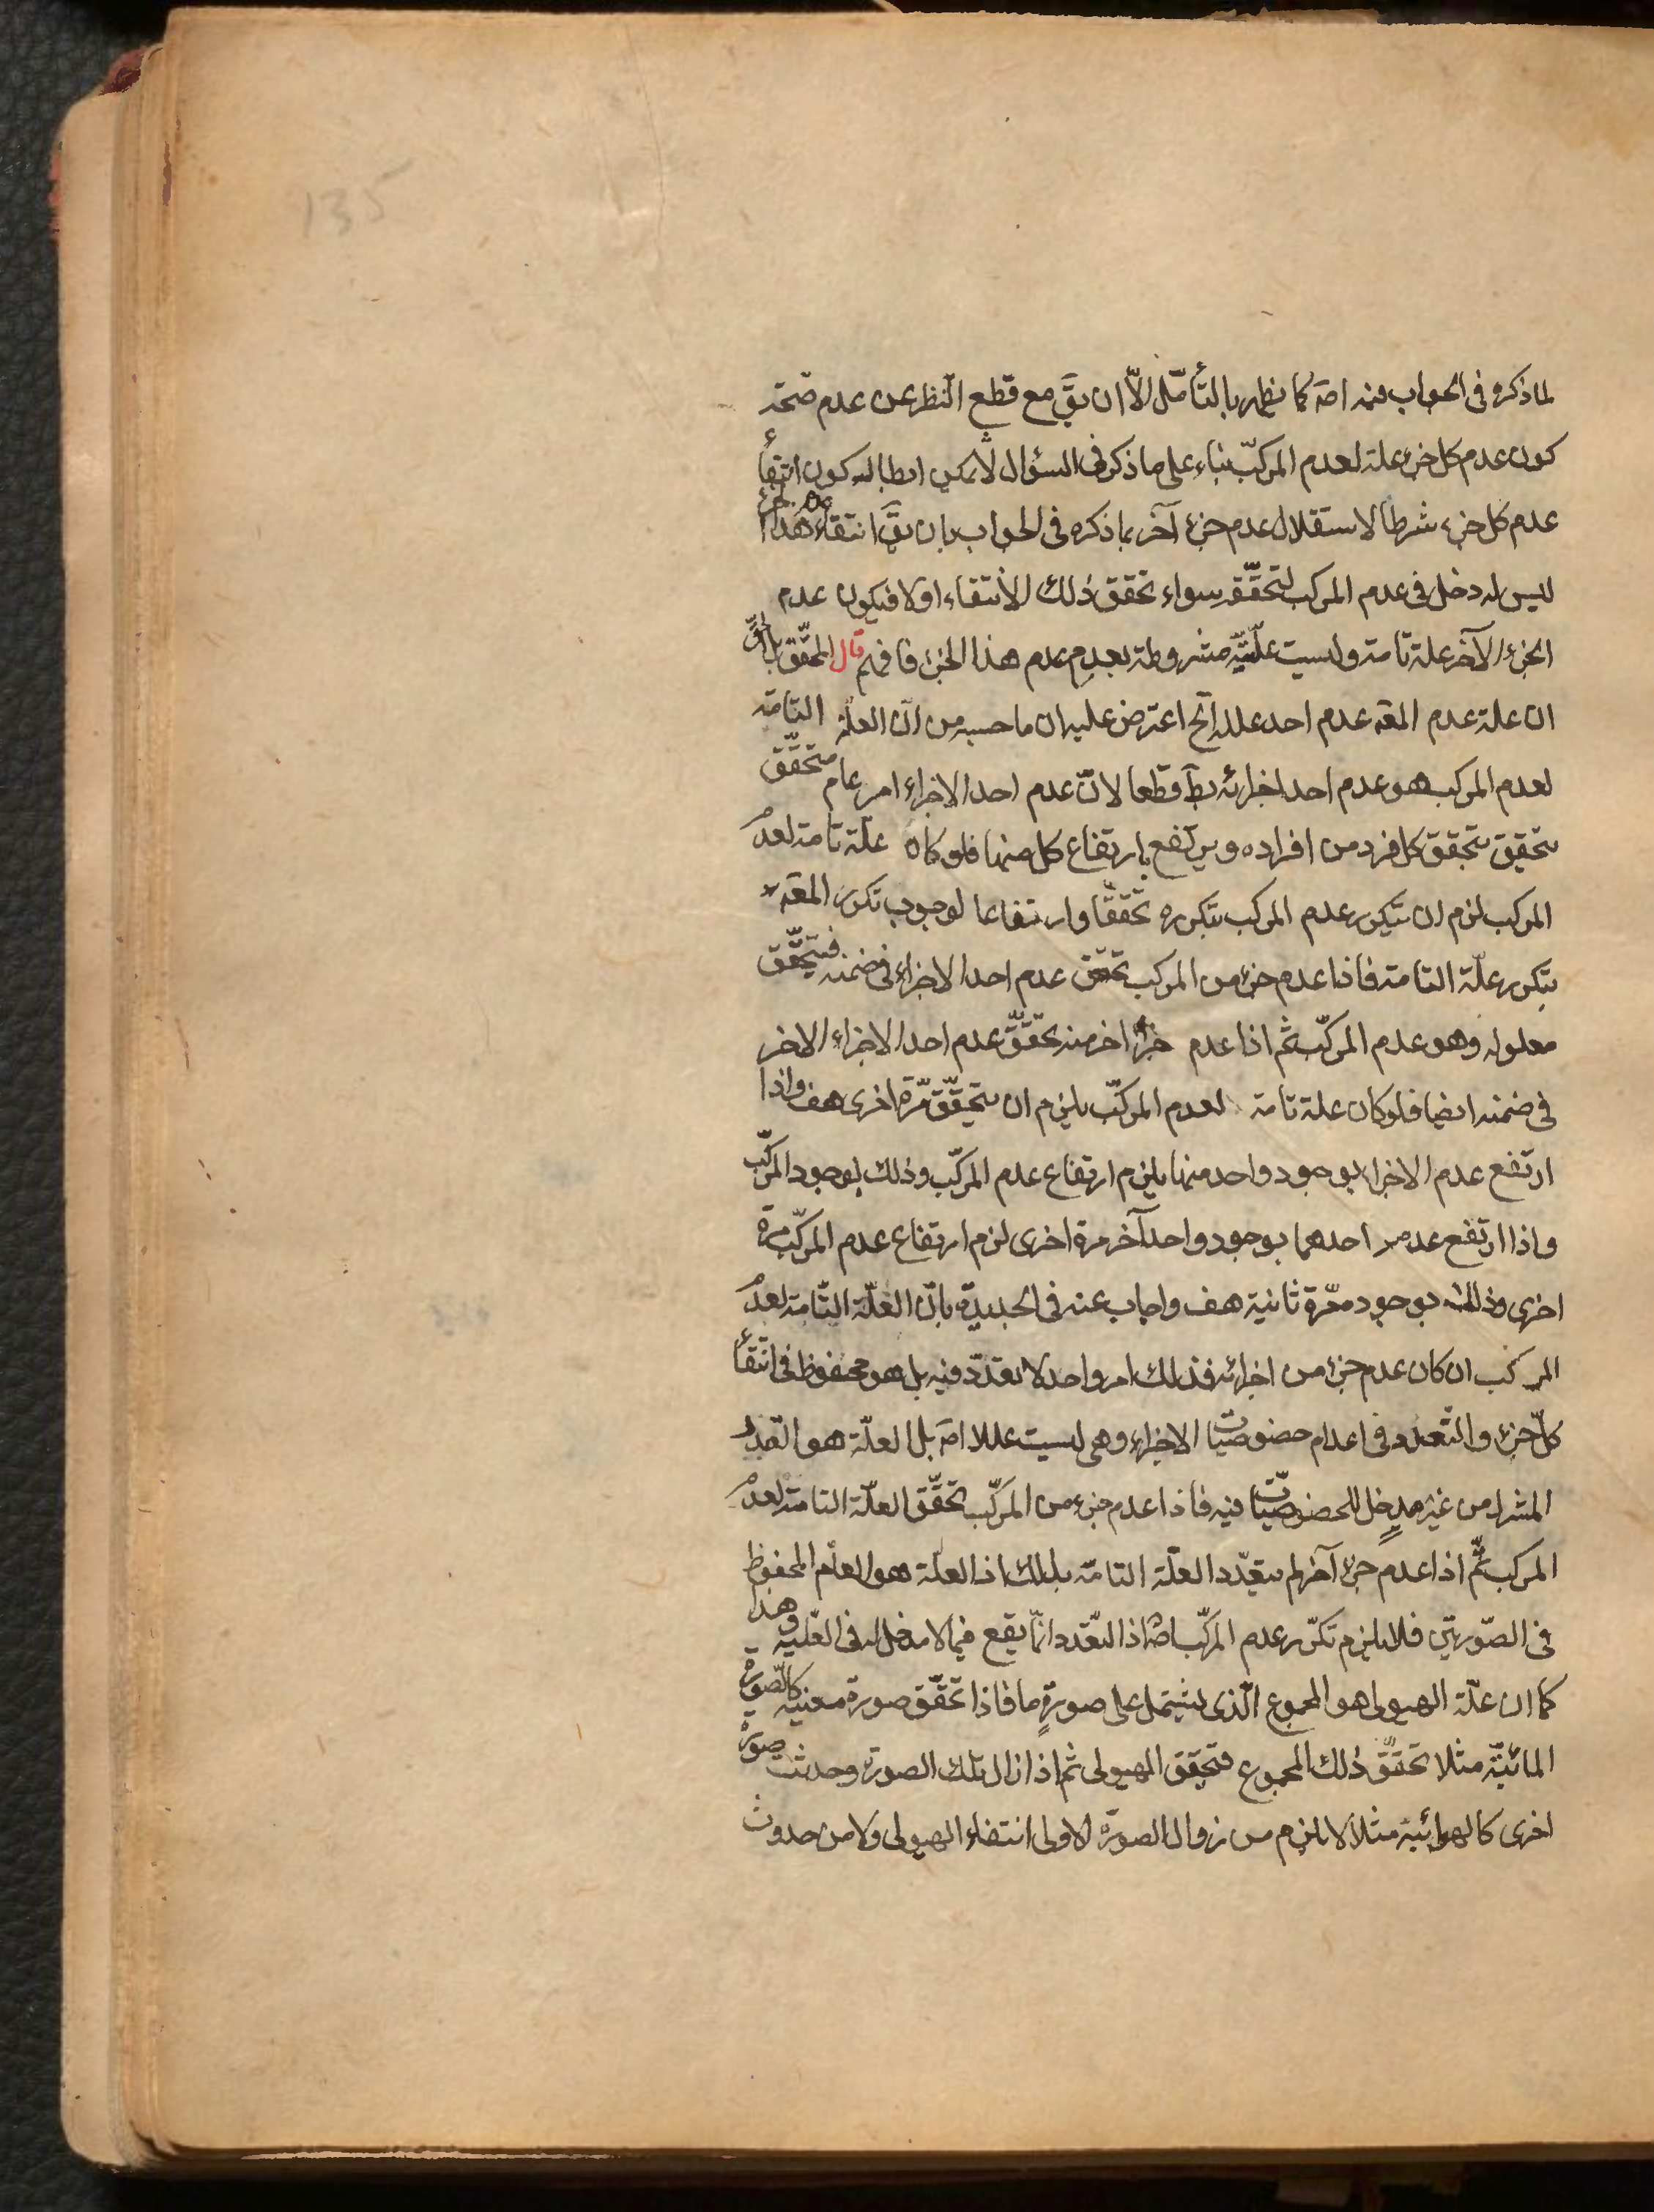 135
لما ذكره فى الجواب فيه اصَه كما يظهر بالتأمّل الّا ان يقَ مع قطع النّظر عن عدم صحّة
كون عدم كل جزء علة لعدم المركّب بناء على ما ذكر فى السؤال لا يمكن ابطال كون انتفأ
عدم كل جزء شرطا لاستقلال عدم جزء آخر بما ذكره فى الجواب بان يقَ انتفاء هذا الجزء
ليس له دخل فى عدم المركب لتحقّقه سواء تحقق ذلك الانتفاء اولا فيكون عدم
الجزء الآخر علة تامة وليست علّيّته مشروطة بعدم عدم هذا الجزء فافهم قال المحقّق بل الحقّ
ان علة عدم المعَه عدم احد علله الَخ اعترض عليه ان ما حسبه من انّ العلّة التامّة
لعدم المركب هو عدم احد اجزائه بطَ قطعا لانّ عدم احد الاجزاء امر عام متحقّق
يتحقق بتحقق كل فرد من افراده ويرتفع بارتفاع كل منها فلو كان علّة تامة لعدم
المركب لزم ان يتكرر عدم المركب بتكرره تحققّا وارتفاعا لوجوب تكرر المعَه
بتكرر علّة التامة فاذا عدم جزء من المركب تحقق عدم احد الاجزاء فى ضمنه فيتحقّق
معلوله وهو عدم المركّب ثم اذا عدم جزء اخر منه تحقّق عدم احد الاجزاء الاخر
فى ضمنه ايضا فلو كان علة تامة لعدم المركّب يلزم ان يتحقّق مرّة اخرى هف واذا
ارتفع عدم الاجزا بوجود واحد منها يلزم ارتفاع عدم المركّب وذلك بوجود المركّب
واذا ارتفع عدم احدهما بوجود واحد آخر مرة اخرى لزم ارتفاع عدم المركّب مرة
اخرى وذلك بوجود مرّة ثانية هف واجاب عنه فى الجديدة بانّ العلّة التّامة لعدم
المركب ان كان عدم جزء من اجزائه فذلك امر واحد لا تعدّد فيه بل هو محفوظ فى انتفأ
كلّ جزء والتّعدد فى اعدام خصوصيّات الاجزاء وهى ليست عللا اصَ بل العلّة هو القدر
المشترك من غير مدخل للخصوصيّات فيه فاذا عدم جزء من المركّب تحقّق العلّة التامة لعدم
المركب ثمّ اذا عدم جزء آخر لم يتعدّد العلّة التامّة بذلك اذ العلّة هو العام المحفوظ
فى الصّورتين فلا يلزم تكرّر عدم المركّب اصَ اذ التعّدد انّما يقع فيما لا مدخل له فى العّليّة وهذا
كما ان علّة الهيولى هو المجموع الّذى يشتمل على صورةٍ ما فاذا تحقّق صورة معنية كالصّورة
المائيّة مثلا تحقّق ذلك المجموع فتحقق الهيولى ثم اذا زال تلك الصورة وحدثت صورة
اخرى كالهوائية مثلا لا يلزم من زوال الصورة الاولى انتفاء الهيولى ولا من حدوث